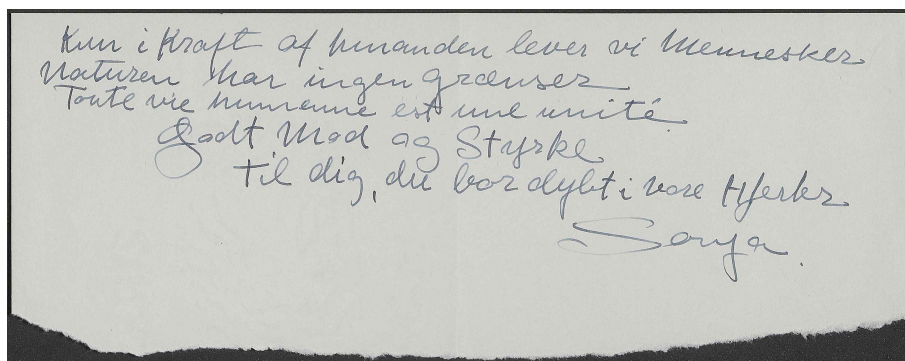 Kun i Kraft af hinanden lever vi Mennesker
Naturen har ingen Grænser
Toute vie humaine est une unité
Godt Mod og Styrke
til dig, du bor dybt i vore Hjerter
Sonja.